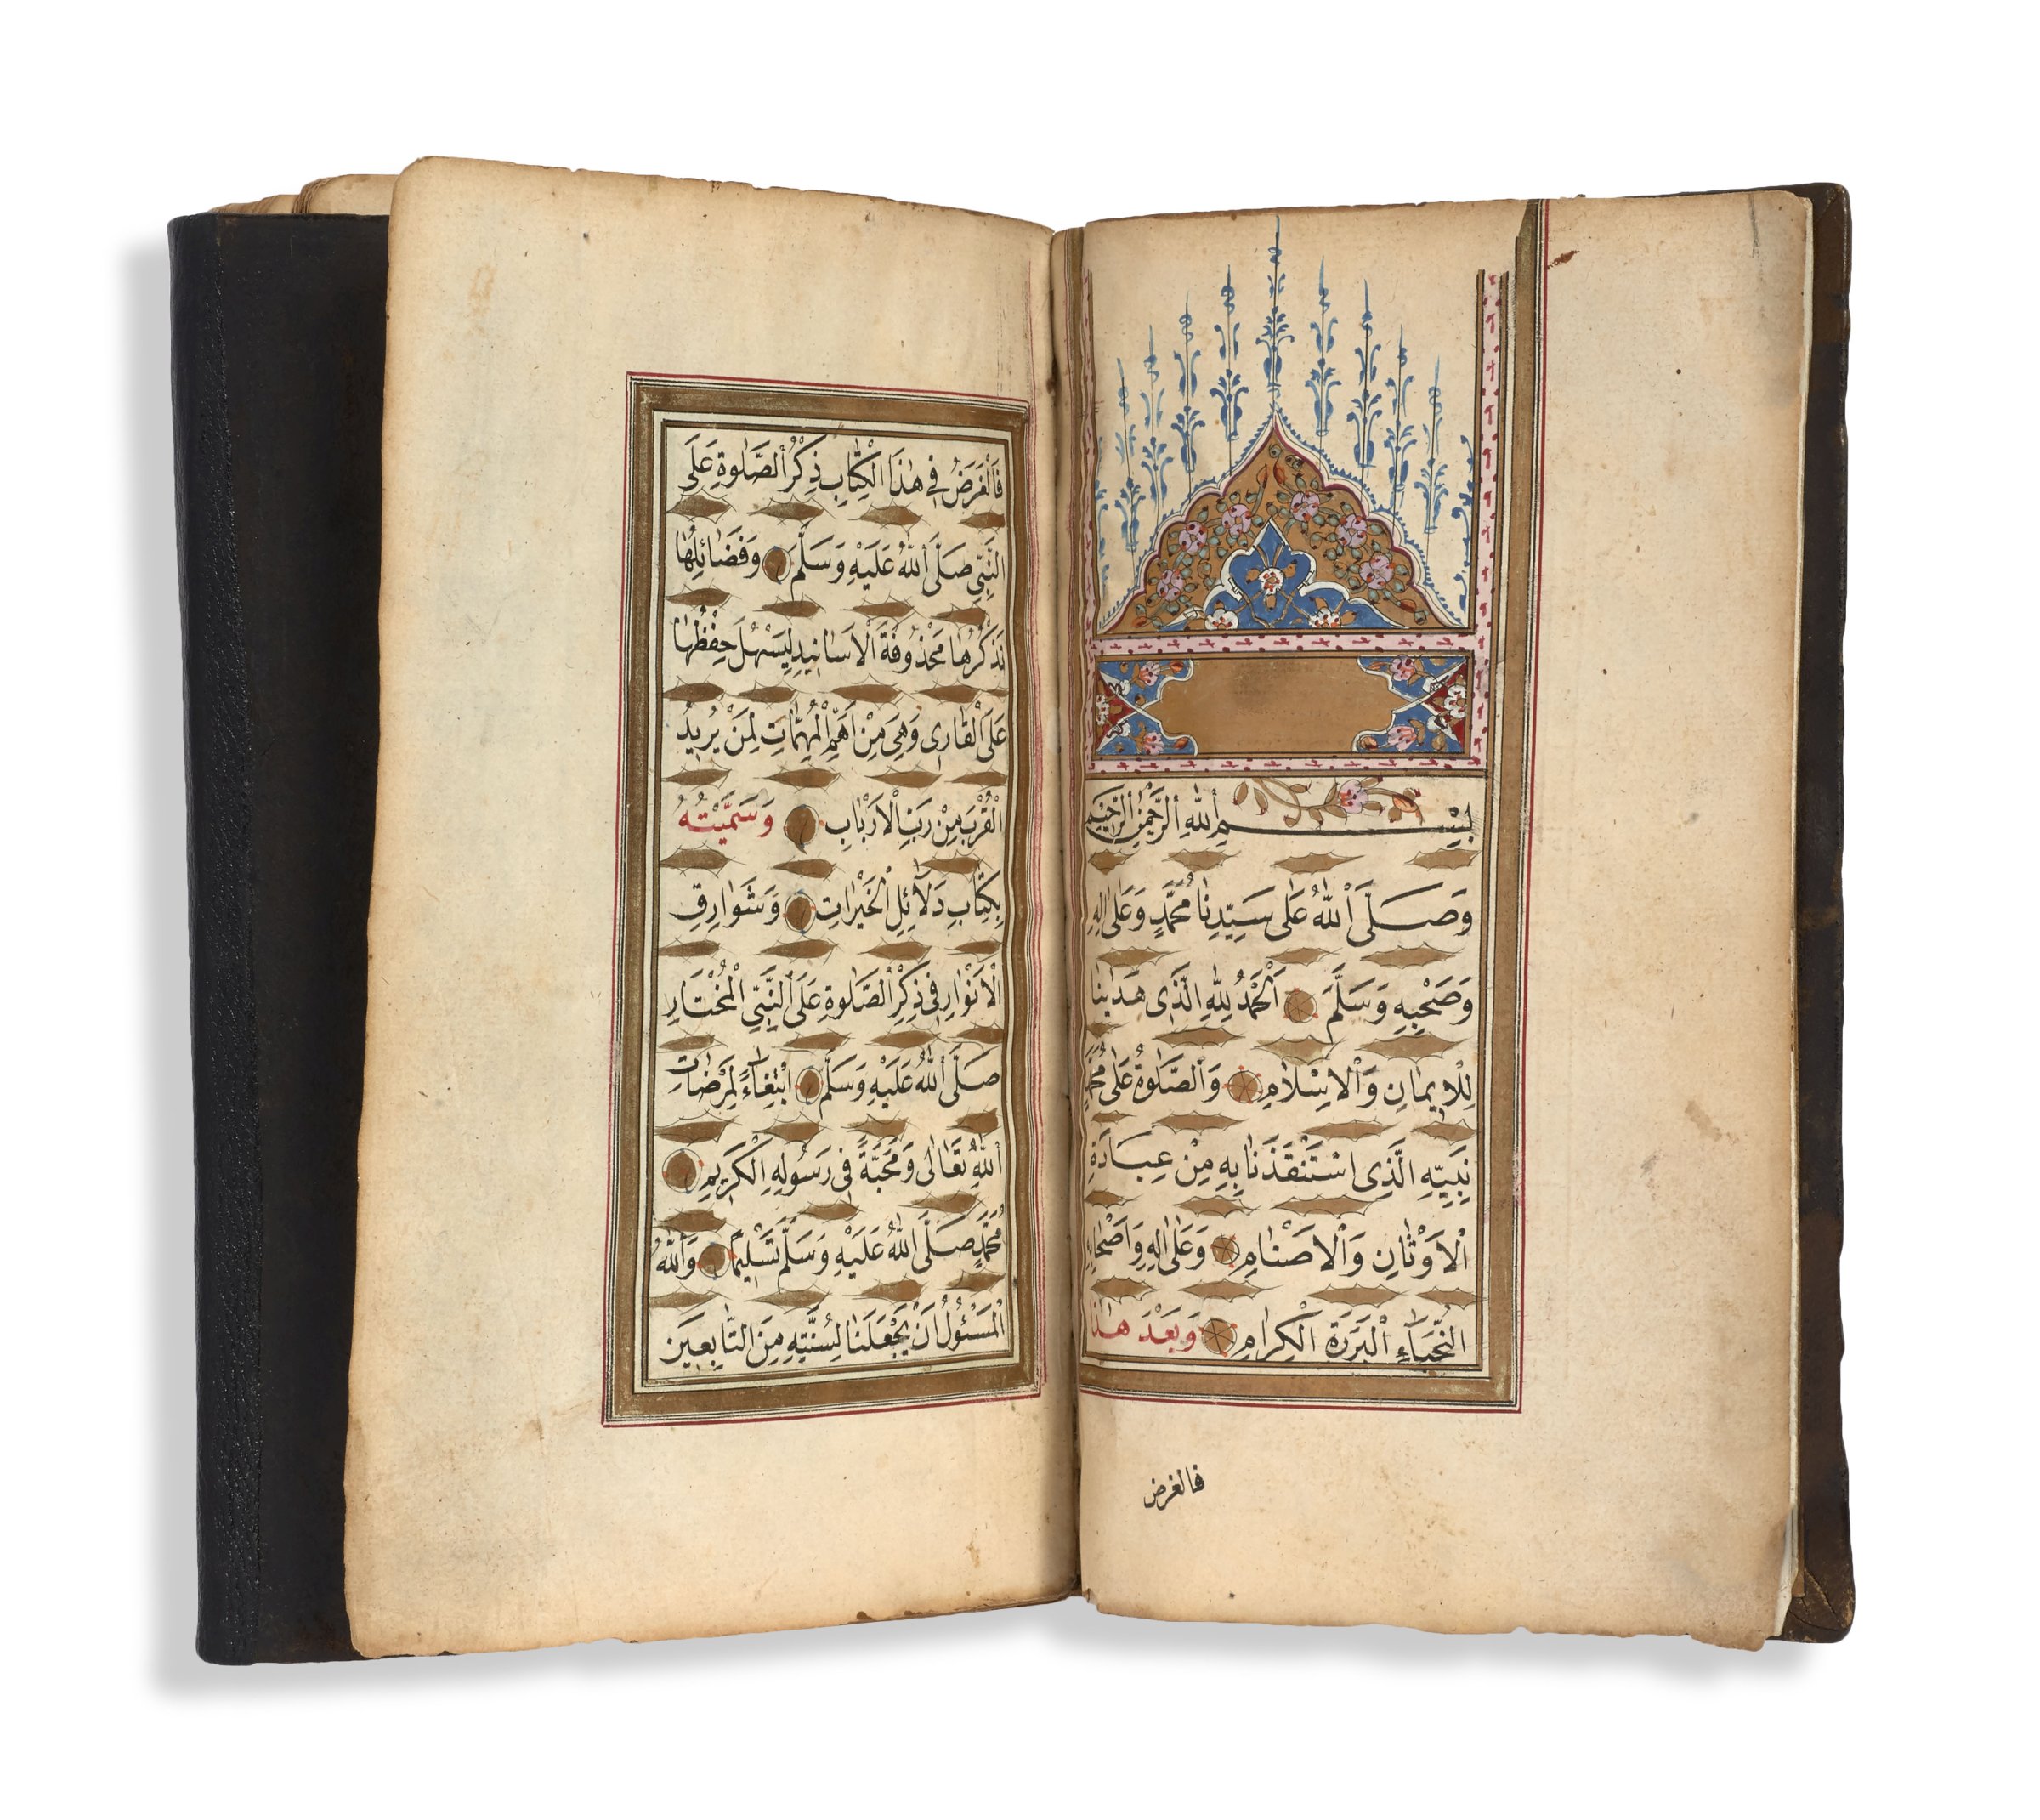 بِسْمِ اللهِ الرَّحْمٰنِ الرَّحِيْمِ
وَصَلَّى اللهُ عَلٰى سَيِّدِنَا مُحَمَّدٍ وَعَلٰى اٰلِهِ
وَصَحْبِهِ وَسَلَّمَ اَلْحَمْدُ لِلّٰهِ الَّذِى هَدٰينَا
لِلْاِيمَانِ وَالْاِسْلَامِ وَالصَّلٰوةُ عَلٰى مُحَمَّدٍ
نَبِيِّهِ الَّذِى اسْتَنْقَذَنَا بِهِ مِنْ عِبَادَةِ
الْاَوْثَانِ وَالْاَصْنَامِ وَعَلٰى اٰلِهِ وَاَصْحَابِهِ
النُّجَبَاءِ الْبَرَرَةِ الْكِرَامِ وَبَعْدَ هٰذَا
فالغرض
فَالْغَرَضُ فِى هٰذَا الْكِتَابِ ذِكْرُ الصَّلٰوةِ عَلَى
النَّبِىِّ صَلَّى اللهُ عَلَيْهِ وَسَلَّمَ وَفَضَائِلُهَا
نَذْكُرُهَا مَحْذُوفَةَ الْاَسَانِيدِ لِيَسْهُلَ حِفْظُهَا
عَلَى الْقَارِى وَهِىَ مِنْ اَهَمِّ الْمُهِمَّاتِ لِمَنْ يُرِيدُ
الْقُرْبَ مِنْ رَبِّ الْاَرْبَابِ وَسَمَّيْتُهُ
بِكِتَابِ دَلَائِلِ الْخَيْرَاتِ وَشَوَارِقِ
الْاَنْوَارِ فِى ذِكْرِ الصَّلٰوةِ عَلَى النَّبِىِّ الْمُخْتَارِ
صَلَّى اللهُ عَلَيْهِ وَسَلَّمَ ابْتِغَاءً لِمَرْضَاتِ
اللهِ تَعَالٰى وَمَحَبَّةً فِى رَسُولِهِ الْكَرِيمِ
مُحَمَّدٍ صَلَّى اللهُ عَلَيْهِ وَسَلَّمَ تَسْلِيمًا وَاللهُ
الْمَسْئُولُ اَنْ يَجْعَلَنَا لِسُنَّتِهِ مِنَ التَّابِعِينَ